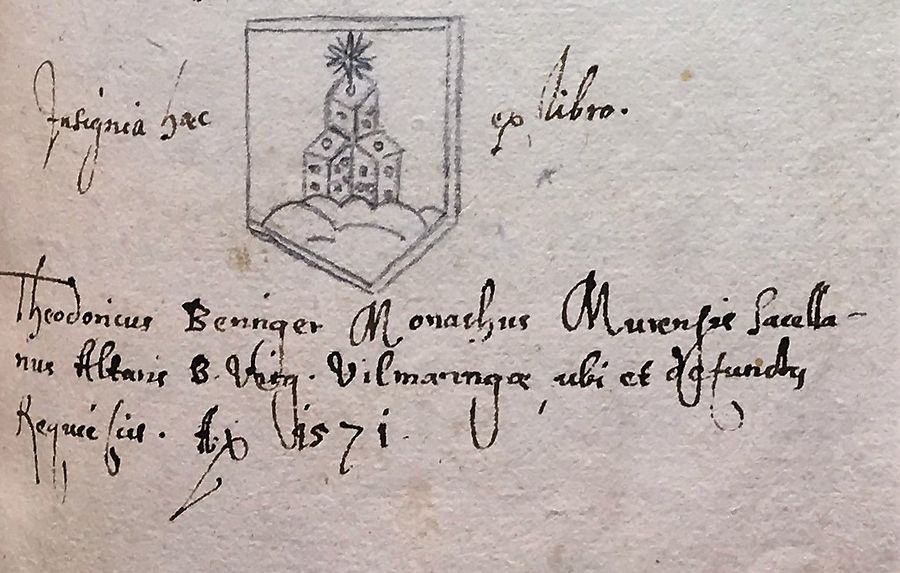 Insignia hæc ex libro.
Theodoricus Beninger Monachus Murensis Sacella-
nus Altaris B. Virg. Vilmaringæ ubi et defunctus
Requiescit. 1571.